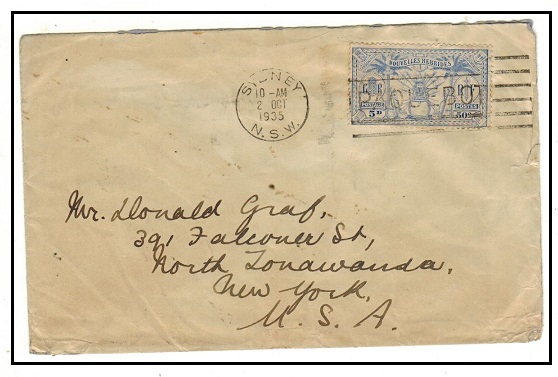 SYDNEY
10-AM
2 OCT
1935
N.S.W.
NOUVELLES HEBRIDES
G R
R F
POSTAGE
POSTES
5D
50
Mr. Donald Graf,
391 Falconer St,
North Tonawanda,
New York,
U. S. A.